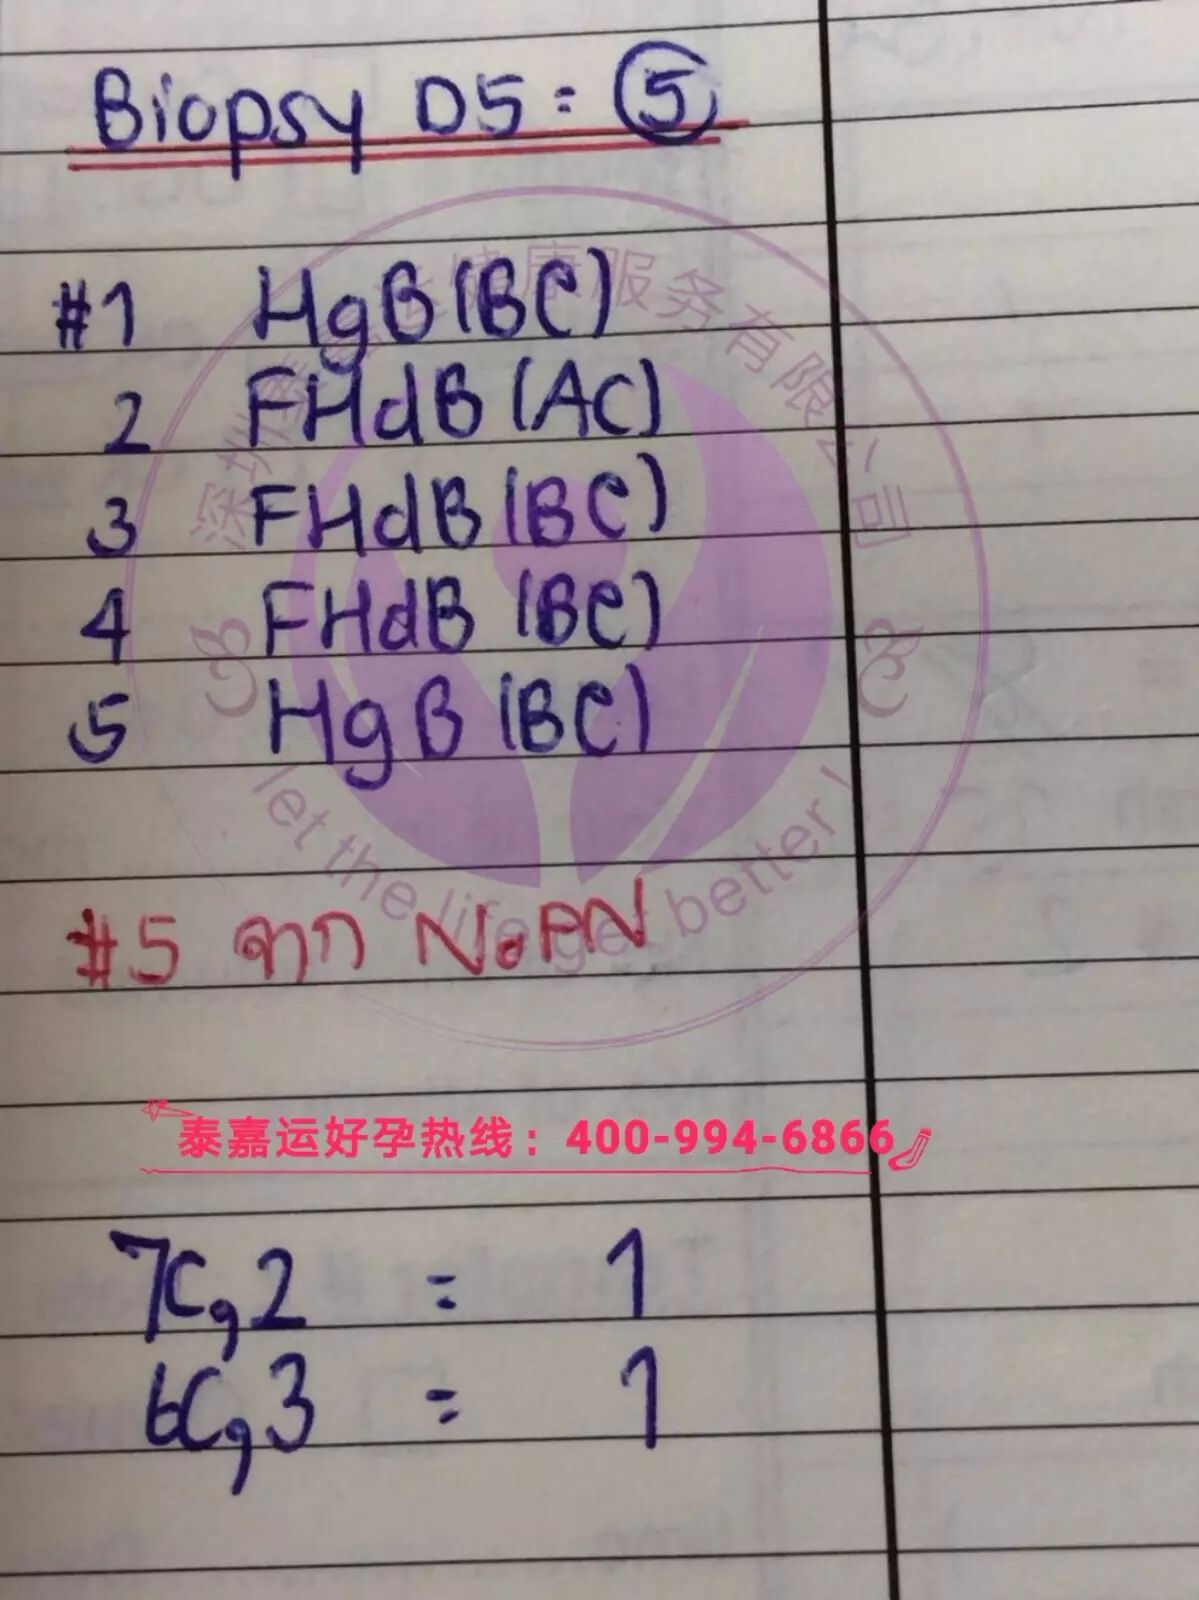 Biopsy D5 = 5
#1 HgB (BC)
2 FHdB (AC)
3 FHdB (BC)
4 FHdB (BC)
5 HgB (BC)
#5 จาก NoPN
泰嘉运好孕热线：400-994-6866
7Cg2 = 1
6Cg3 = 1
深圳泰嘉运健康服务有限公司
let the life get better!